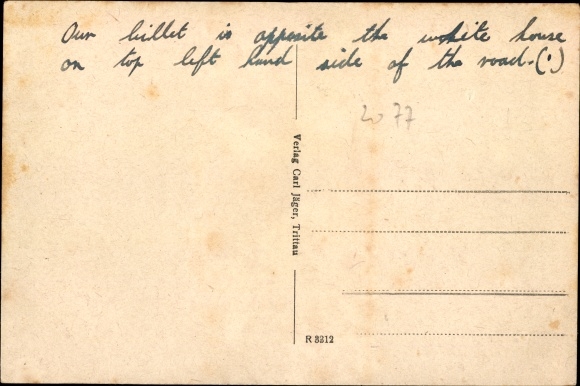 Our billet is opposite the white house
on top left hand side of the road. (·)
2077
Verlag Carl Jäger, Trittau
R 3312